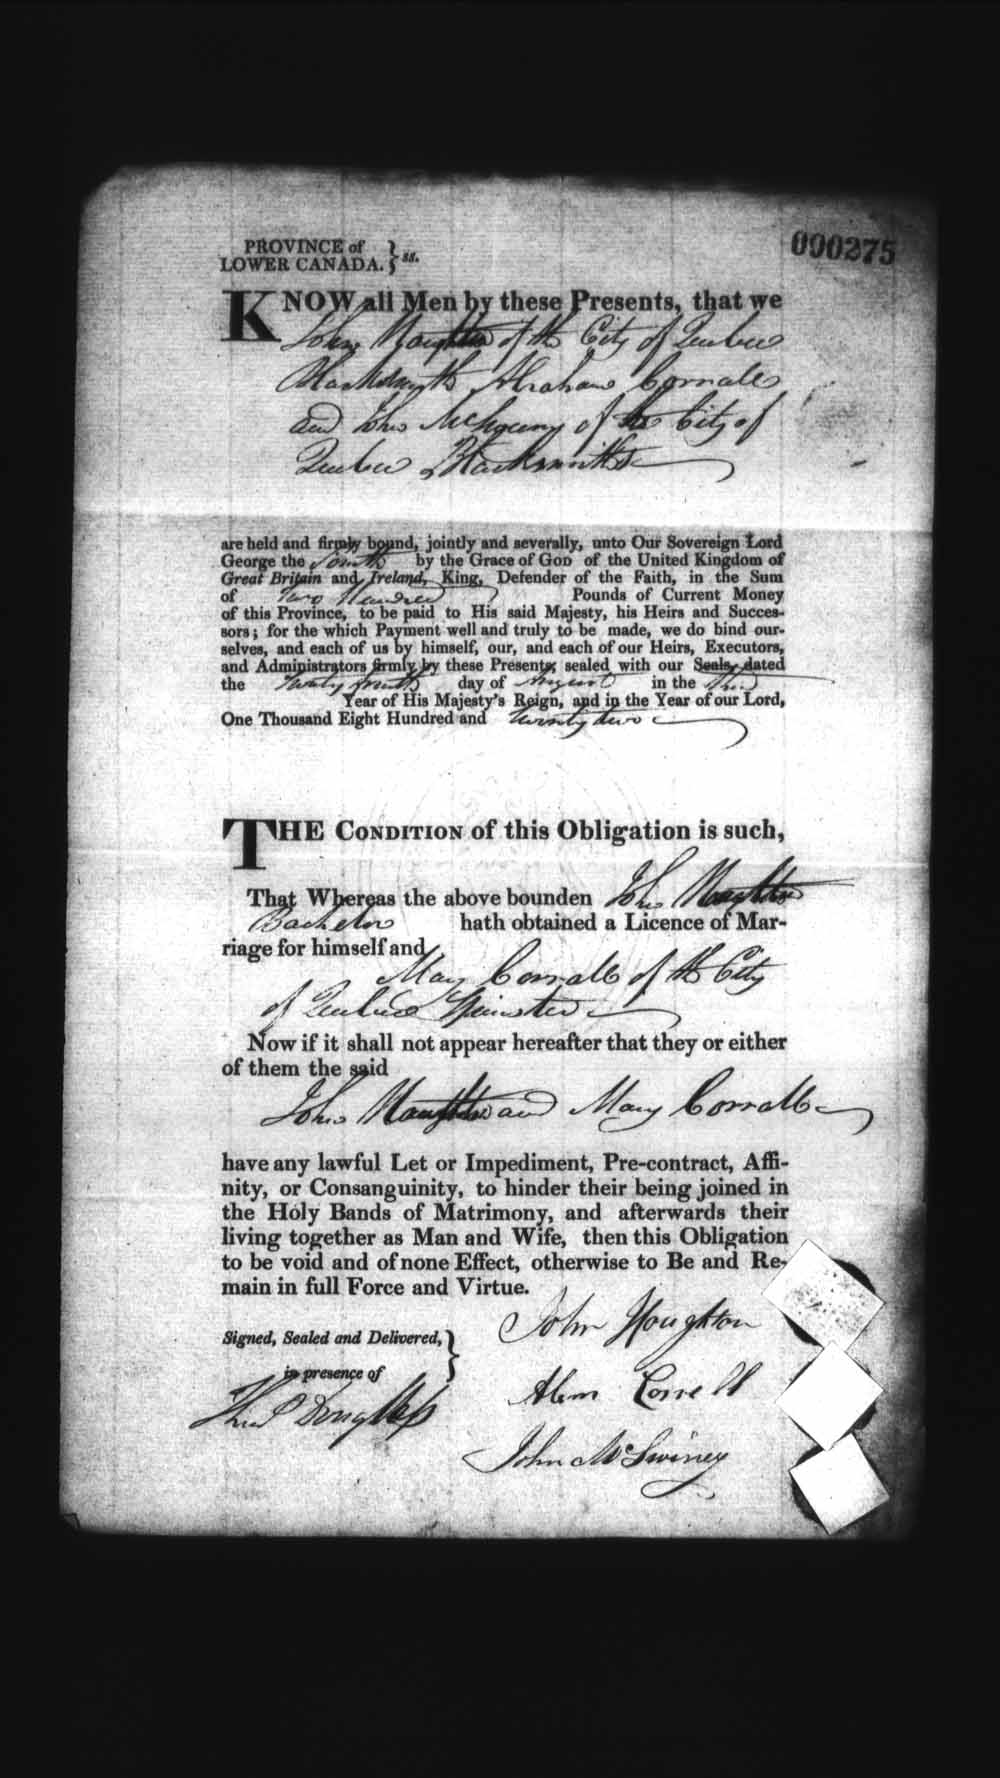 000275
PROVINCE of
LOWER CANADA. } ss.
KNOW all Men by these Presents, that we
John Houghton of the City of Quebec
Blacksmith Abraham Corrall
and John McSweeny of the City of
Quebec Blacksmiths
are held and firmly bound, jointly and severally, unto Our Sovereign Lord
George the Fourth by the Grace of GOD of the United Kingdom of
Great Britain and Ireland, King, Defender of the Faith, in the Sum
of Two Hundred Pounds of Current Money
of this Province, to be paid to His said Majesty, his Heirs and Succes-
sors; for the which Payment well and truly to be made, we do bind our-
selves, and each of us by himself, our, and each of our Heirs, Executors,
and Administrators firmly by these Presents; sealed with our Seals, dated
the Twenty fourth day of August in the Third
Year of His Majesty's Reign, and in the Year of our Lord,
One Thousand Eight Hundred and twenty two
THE CONDITION of this Obligation is such,
That Whereas the above bounden John Houghton
Bachelor hath obtained a Licence of Mar-
riage for himself and
Mary Corrall of the City
of Quebec Spinster
Now if it shall not appear hereafter that they or either
of them the said
John Houghton and Mary Corrall
have any lawful Let or Impediment, Pre-contract, Affi-
nity, or Consanguinity, to hinder their being joined in
the Holy Bands of Matrimony, and afterwards their
living together as Man and Wife, then this Obligation
to be void and of none Effect, otherwise to Be and Re-
main in full Force and Virtue.
John Houghton
Signed, Sealed and Delivered,
in presence of }
Abm Correll
Thos Douglass
John McSwiney